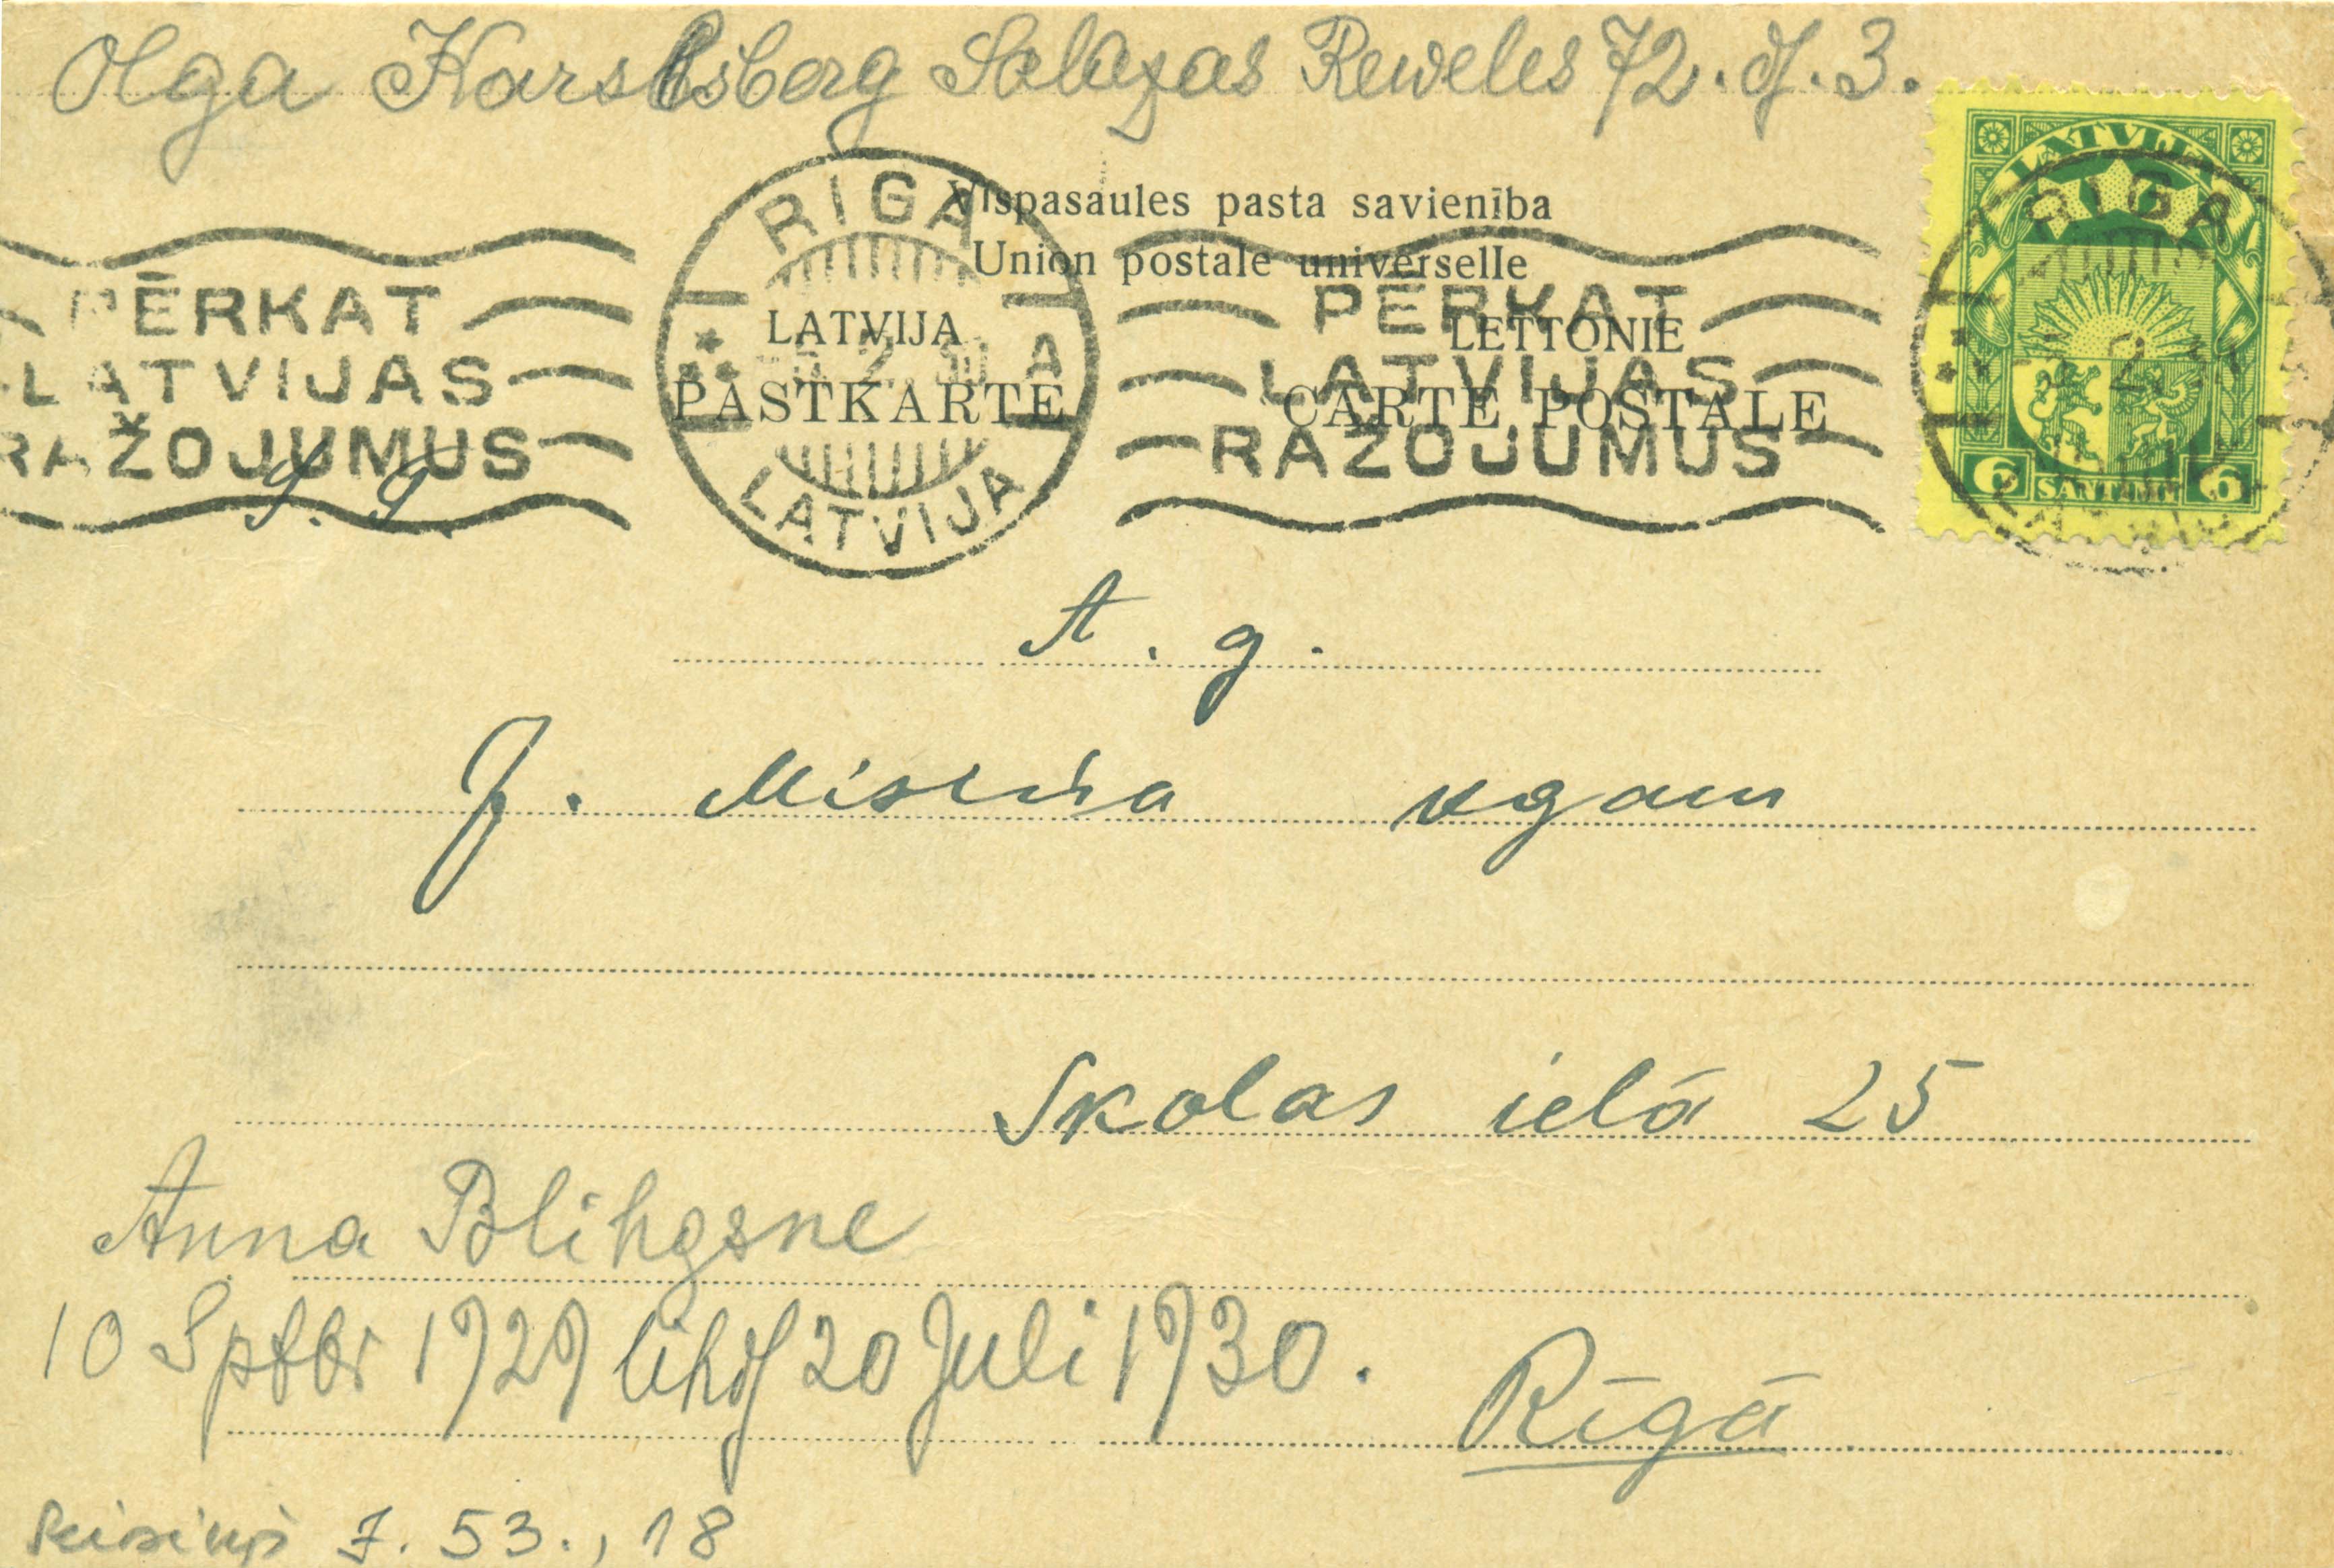 Olga Karslsberg Salazas Reweles 72. dz. 3.
LATVIJA
RIGA
6 SANTIMI 6
RIGA
LATVIJA
Vispasaules pasta savienība
Union postale universelle
LATVIJA
LETTONIE
PASTKARTE
CARTE POSTALE
PĒRKAT
LATVIJAS
RAŽOJUMUS
PĒRKAT
LATVIJAS
RAŽOJUMUS
A. g.
J. Misiņa kgam
Skolas ielā 25
Anna Blihgsne
10 Sptbr 1929 lihds 20 Juli 1930.
Rīgā
J. 53., 18